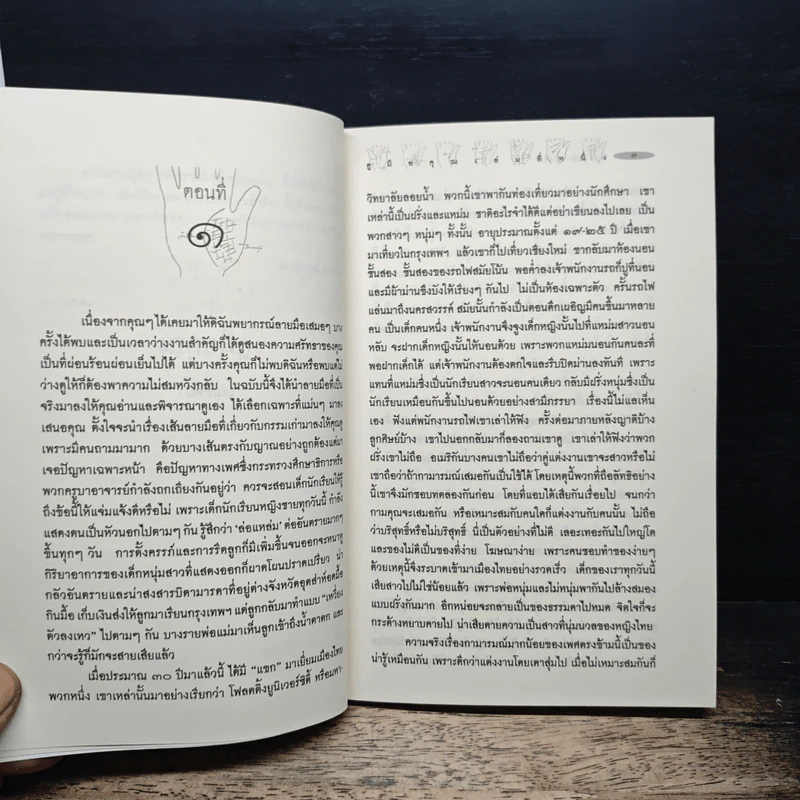 ตอนที่
๑
เนื่องจากคุณๆ ได้เคยมาให้ดิฉันพยากรณ์ลายมือเสมอๆ บาง
ครั้งได้พบและเป็นเวลาว่างงานสำคัญก็ได้ดูสนองความศรัทธาของคุณ
เป็นที่ผ่อนร้อนผ่อนเย็นไปได้ แต่บางครั้งคุณก็ไม่พบดิฉันหรือพบแต่ไม่
ว่างดูให้ก็ต้องพาความไม่สมหวังกลับ ในฉบับนี้จึงได้นำลายมือที่เป็น
จริงมาลงให้คุณอ่านและพิจารณาดูเอง ได้เลือกเฉพาะที่แม่นๆ มาลง
เสนอคุณ ตั้งใจจะนำเรื่องเส้นลายมือที่เกี่ยวกับกรรมเก่ามาลงให้คุณดู
เพราะมีคนถามมามาก ด้วยบางเส้นตรงกับญาณอย่างถูกต้องแต่มา
เจอปัญหาเฉพาะหน้า คือปัญหาทางเพศซึ่งกระทรวงศึกษาธิการหรือ
พวกครูบาอาจารย์กำลังถกเถียงกันอยู่ว่า ควรจะสอนเด็กนักเรียนให้รู้
ถึงข้อนี้ให้แจ่มแจ้งดีหรือไม่ เพราะเด็กนักเรียนหญิงชายทุกวันนี้ กำลัง
แสดงตนเป็นหัวนอกไปตามๆ กัน รู้สึกว่า 'ล่อแหลม' ต่ออันตรายมากๆ
ขึ้นทุกๆ วัน การตั้งครรภ์และการรีดลูกก็มีเพิ่มขึ้นจนออกจะหนาหู
กิริยาอาการของเด็กหนุ่มสาวที่แสดงออกก็ผาดโผนปราดเปรียว น่า
กลัวอันตรายและน่าสงสารบิดามารดาที่อยู่ต่างจังหวัดอุตส่าห์อดมื้อ
กินมื้อ เก็บเงินส่งให้ลูกมาเรียนกรุงเทพฯ แต่ลูกกลับมาทำแบบ "เหวี่ยง
ตัวลงเหว" ไปตามๆ กัน บางรายพ่อแม่มาเห็นลูกเข้าถึงน้ำตาตก และ
กว่าจะรู้ก็มักจะสายเสียแล้ว
เมื่อประมาณ ๓๐ ปีมาแล้วนี้ ได้มี "แขก" มาเยี่ยมเมืองไทย
พวกหนึ่ง เขาเหล่านั้นมาอย่างเรียกว่า โฟลตติ้งยูนิเวอร์ซิตี้ หรือมหา-
๓
วิทยาลัยลอยน้ำ พวกนี้เขาพากันท่องเที่ยวมาอย่างนักศึกษา เขา
เหล่านี้เป็นฝรั่งและแหม่ม ชาติอะไรจำได้ดีแต่อย่าเขียนลงไปเลย เป็น
พวกสาวๆ หนุ่มๆ ทั้งนั้น อายุประมาณตั้งแต่ ๑๙-๒๕ ปี เมื่อเขา
มาเที่ยวในกรุงเทพฯ แล้วเขาก็ไปเที่ยวเชียงใหม่ ขากลับมาห้องนอน
ชั้นสอง ชั้นสองของรถไฟสมัยโน้น พอค่ำลงเจ้าพนักงานรถก็ปูที่นอน
และมีผ้าม่านซึ่งบังให้เรียงๆ กันไป ไม่เป็นห้องเฉพาะตัว ครั้นรถไฟ
แล่นมาถึงนครสวรรค์ สมัยนั้นกำลังเป็นตอนดึกเผอิญมีคนขึ้นมาหลาย
คน เป็นเด็กคนหนึ่ง เจ้าพนักงานจึงจูงเด็กหญิงนั้นไปที่แหม่มสาวนอน
หลับ จะฝากเด็กหญิงนั้นให้นอนด้วย เพราะพวกแหม่มนอนกันคนละที่
พอฝากเด็กได้ แต่เจ้าพนักงานต้องตกใจและรีบปิดม่านลงทันที เพราะ
แทนที่แหม่มซึ่งเป็นนักเรียนสาวจะนอนคนเดียว กลับมีฝรั่งหนุ่มซึ่งเป็น
นักเรียนเหมือนกันขึ้นไปนอนด้วยอย่างสามีภรรยา เรื่องนี้ไม่แลเห็น
เอง ฟังแต่พนักงานรถไฟเขาเล่าให้ฟัง ครั้งต่อมาภายหลังญาติบ้าง
ลูกศิษย์บ้าง เขาไปนอกกลับมาก็ลองถามเขาดู เขาเล่าให้ฟังว่าพวก
ฝรั่งเขาไม่ถือ อเมริกันบางคนเขาไม่ถือว่าคู่แต่งงานเขาจะสาวหรือไม่
เขาถือว่าถ้ากามารมณ์เสมอกันเป็นใช้ได้ โดยเหตุนี้พวกที่ถือลัทธิอย่าง
นี้เขาจึงมักชอบทดลองกันก่อน โดยที่แอบได้เสียกันเรื่อยไป จนกว่า
กามคุณจะเสมอกัน หรือเหมาะสมกับคนใดก็แต่งงานกับคนนั้น ไม่ถือ
ว่าบริสุทธิ์หรือไม่บริสุทธิ์ นี่เป็นตัวอย่างที่ไม่ดี เลอะเทอะกันไปใหญ่โต
และของไม่ดีเป็นของที่ง่าย โฆษณาง่าย เพราะคนชอบทำของง่ายๆ
ด้วยเหตุนี้จึงระบาดเข้ามาเมืองไทยอย่างรวดเร็ว เด็กของเราทุกวันนี้
เสียสาวไปไม่ใช่น้อยแล้ว เพราะพ่อหนุ่มและไม่หนุ่มพากันไปล้างสมอง
แบบฝรั่งกันมาก อีกหน่อยจะกลายเป็นของธรรมดาไปหมด จิตใจก็จะ
กระด้างหยาบคายไป น่าเสียดายความเป็นสาวที่นุ่มนวลของหญิงไทย
ความจริงเรื่องกามารมณ์มากน้อยของเพศตรงข้ามนี้เป็นของ
น่ารู้เหมือนกัน เพราะดีกว่าแต่งงานโดยเดาสุ่มไป เมื่อไม่เหมาะสมกันก็